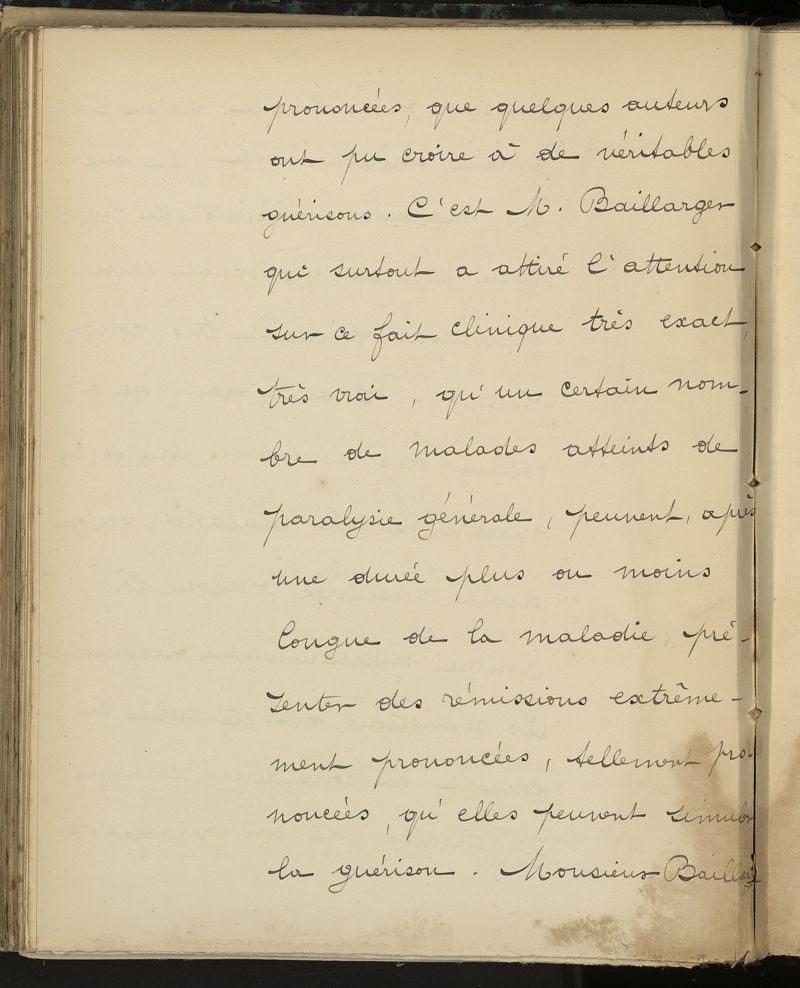 prononcées, que quelques auteurs
ont pu croire à de véritables
guérisons. C'est M. Baillarger
qui surtout a attiré l'attention
sur ce fait clinique très exact,
très vrai, qu'un certain nom-
bre de malades atteints de
paralysie générale, peuvent, après
une durée plus ou moins
longue de la maladie, pré-
senter des rémissions extrême-
ment prononcées, tellement pro-
noncées, qu'elles peuvent simuler
la guérison. Monsieur Baillar